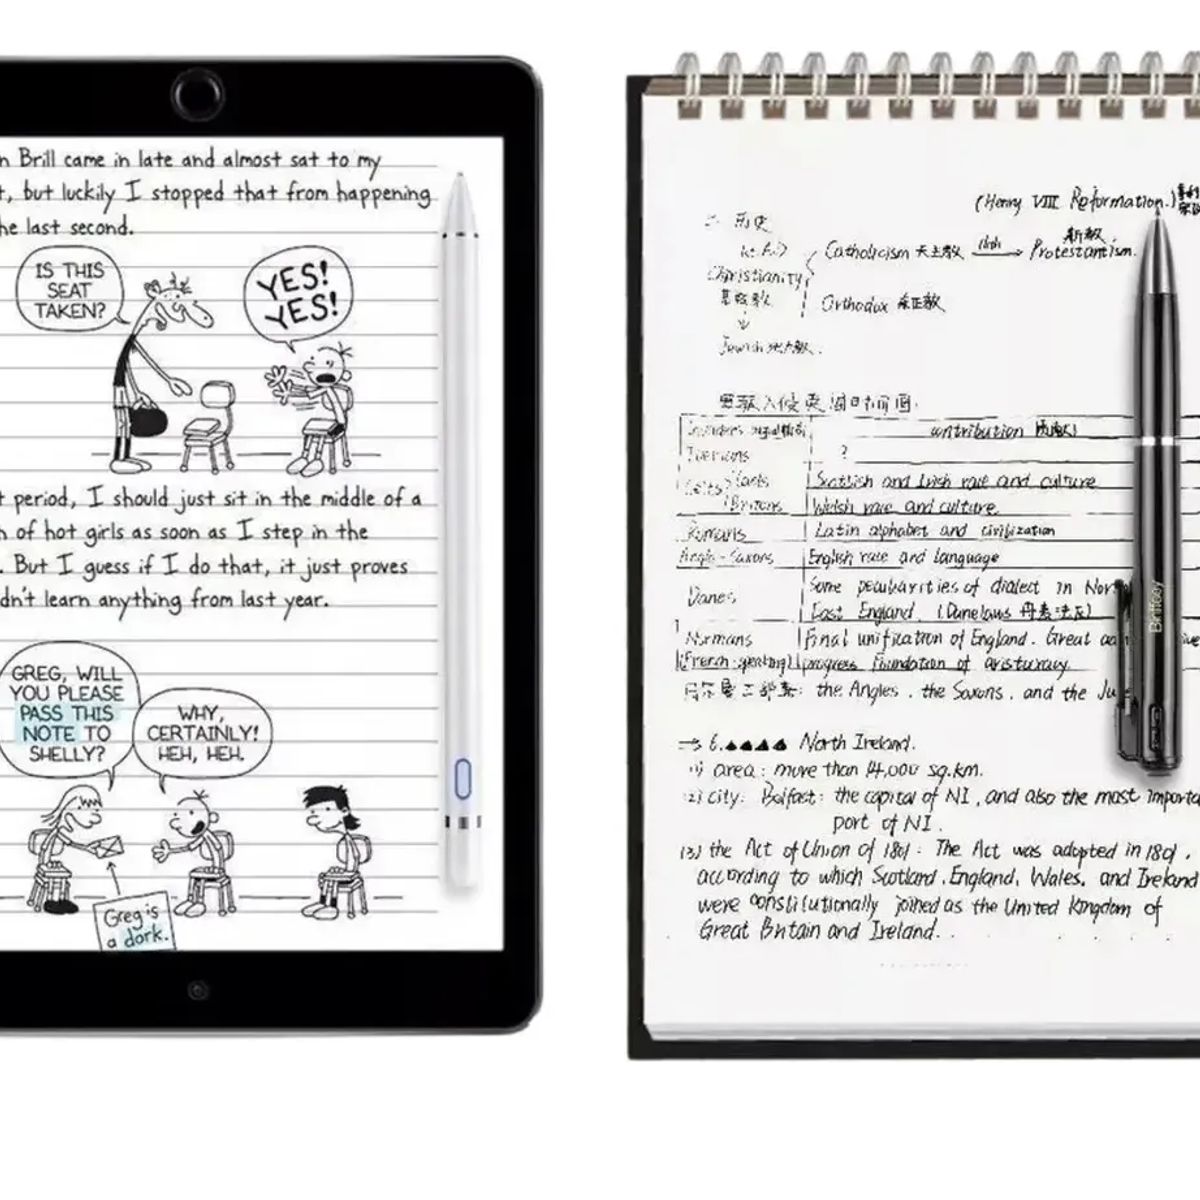 Brill came in late and almost sat to my
but luckily I stopped that from happening
last second.
IS THIS
SEAT
TAKEN?
YES!
YES!
period, I should just sit in the middle of a
of hot girls as soon as I step in the
But I guess if I do that, it just proves
learn anything from last year.
GREG, WILL
YOU PLEASE
PASS THIS
NOTE TO
SHELLY?
WHY,
CERTAINLY!
HEH, HEH.
Greg is
a dork.
(Henry VIII Reformation.)
二 历史
新教
Catholicism 天主教 → Protestantism.
Christianity
基督教
Orthodox 东正教
Jewish
contribution
?
Scottish and Irish race and culture
Britons Welsh race and culture
Romans Latin alphabet and civilization
Anglo-Saxons English race and language
Danes Some peculiarities of dialect in
East England. (Danelaws
Normans Final unification of England. Great
(French-speaking) progress Foundation of aristocracy
the Angles, the Saxons, and the
Briffcoy
⇒ 6.▲▲▲▲ North Ireland.
(1) area: more than 14,000 sq.km.
(2) city: Belfast: the capital of NI, and also the most
port of NI.
(3) the Act of Union of 1801: The Act was adopted in 1801,
according to which Scotland, England, Wales, and Ireland
were constitutionally joined as the United Kingdom of
Great Britain and Ireland.